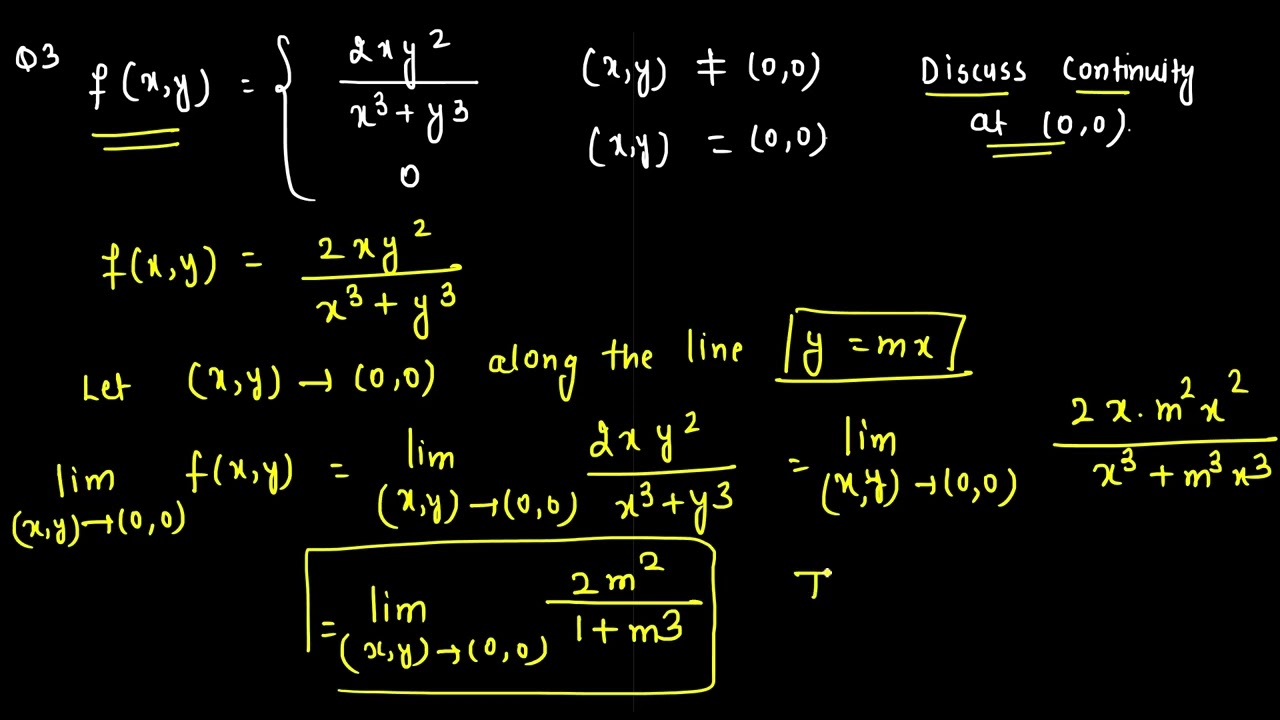 Q3 f(x,y) = { 2xy² / x³ + y³ (x,y) ≠ (0,0)
0 (x,y) = (0,0)
Discuss Continuity
at (0,0).
f(x,y) = 2xy² / x³ + y³
Let (x,y) → (0,0) along the line y = mx
lim (x,y)→(0,0) f(x,y) = lim (x,y)→(0,0) 2xy² / x³+y³ = lim (x,y)→(0,0) 2x.m²x² / x³+m³x³
= lim (x,y)→(0,0) 2m² / 1+m3 T